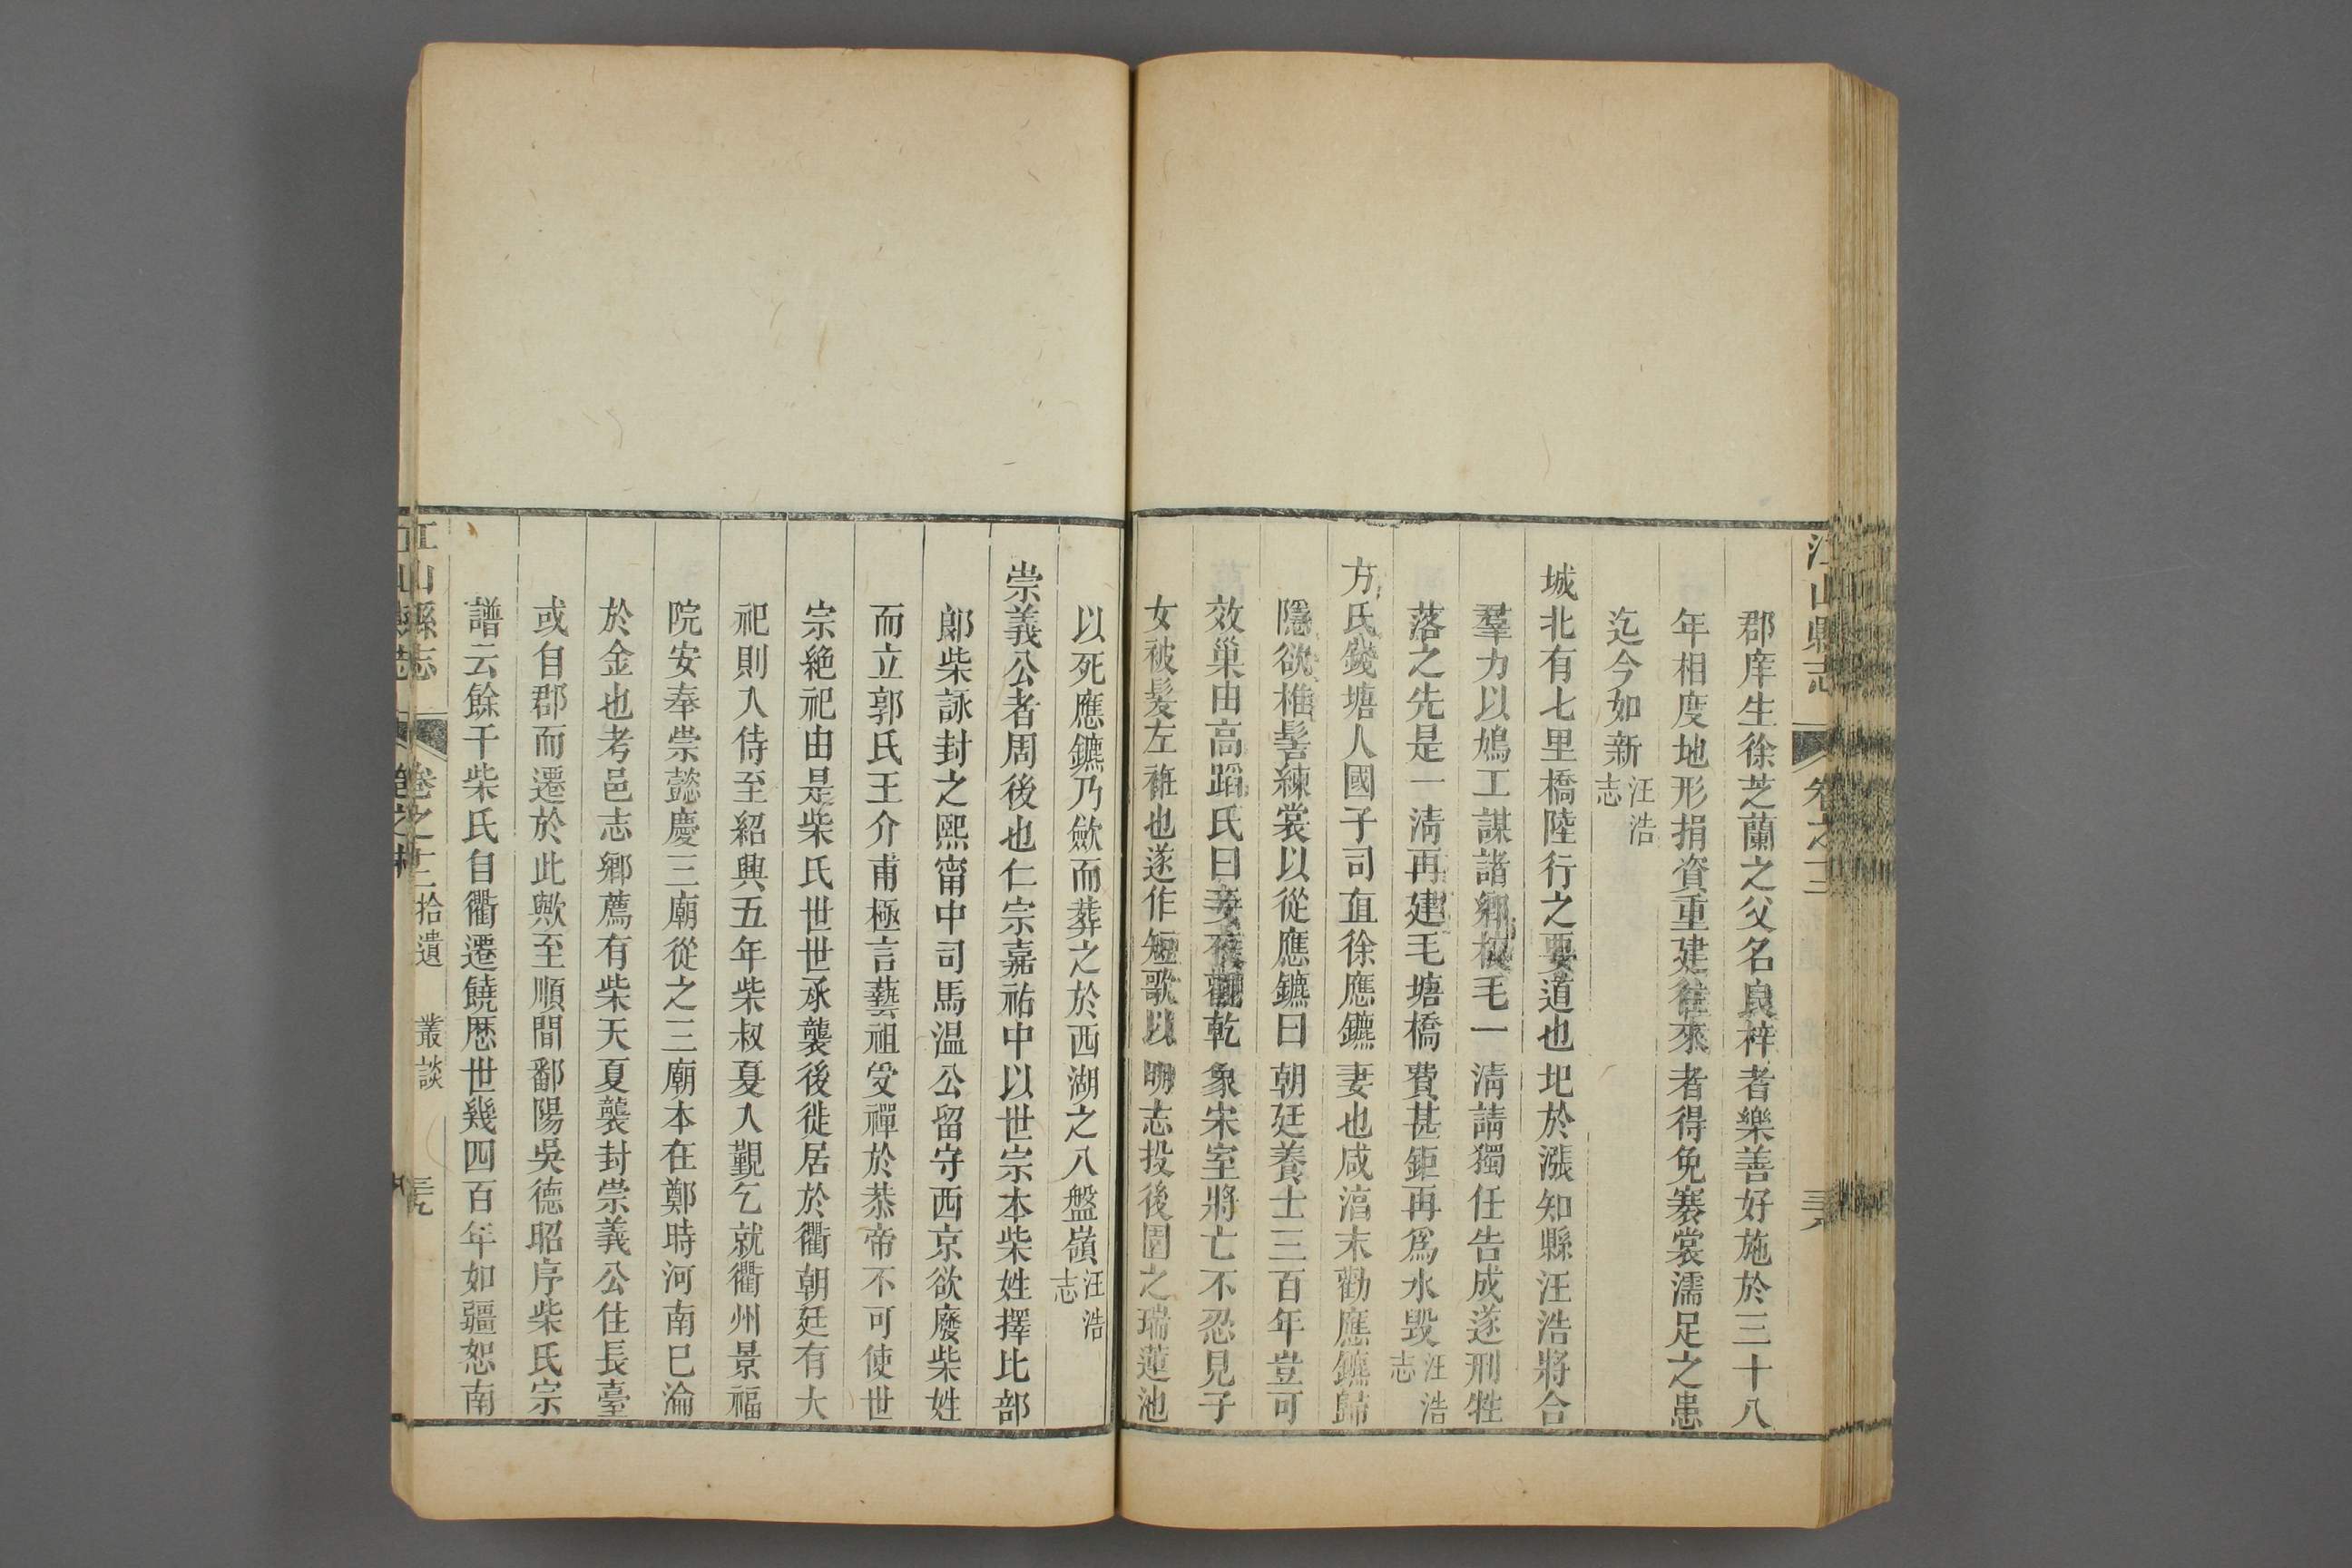 江山縣志 卷之十二 三八
郡庠生徐芝蘭之父名良梓者樂善好施於三十八
年相度地形捐資重建往來者得免褰裳濡足之患
迄今如新汪浩志
城北有七里橋陸行之要道也圯於漲知縣汪浩將合
羣力以鳩工謀諸鄉板毛一淸請獨任告成遂刑牲
落之先是一淸再建毛塘橋費甚鉅再爲水毀汪浩志
方氏錢塘人國子司直徐應鑣妻也咸湻末勸應鑣歸
隱欲椎髻練裳以從應鑣曰朝廷養士三百年豈可
效巢由高蹈氏曰妾夜觀乾象宋室將亡不忍見子
女被髮左衽也遂作短歌以明志投後園之瑞蓮池
以死應鑣乃歛而葬之於西湖之八盤嶺汪浩志
崇義公者周後也仁宗嘉祐中以世宗本柴姓擇比部
郞柴詠封之熙甯中司馬温公留守西京欲廢柴姓
而立郭氏王介甫極言藝祖受禪於恭帝不可使世
宗絶祀由是柴氏世世承襲後徙居於衢朝廷有大
祀則入侍至紹興五年柴叔夏入覲乞就衢州景福
院安奉崇懿慶三廟從之三廟本在鄭時河南已淪
於金也考邑志鄉薦有柴天夏襲封崇義公住長臺
或自郡而遷於此歟至順間鄱陽吳德昭序柴氏宗
譜云餘干柴氏自衢遷饒歷世幾四百年如疆恕南
江山縣志 卷之十二 拾遺 叢談 三九